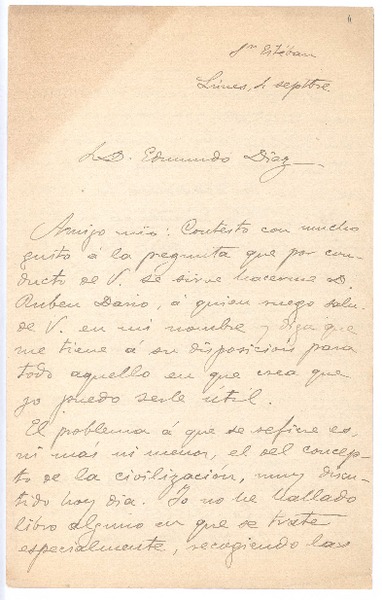 Sn Estéban
Lunes, 4 septbre.
Sr D. Edmundo Diaz
Amigo mio: Contesto con mucho
gusto á la pregunta que por con-
ducto de V. se sirve hacerme D.
Ruben Dario, á quien ruego salu-
de V. en mi nombre y diga que
me tiene á su disposición para
todo aquello en que crea que
yo puedo serle útil.
El problema á que se refiere es,
ni mas ni menor, el del concep-
to de la civilización, muy discu-
tido hoy dia. Yo no he hallado
libro alguno en que se trate
especialmente, recogiendo las